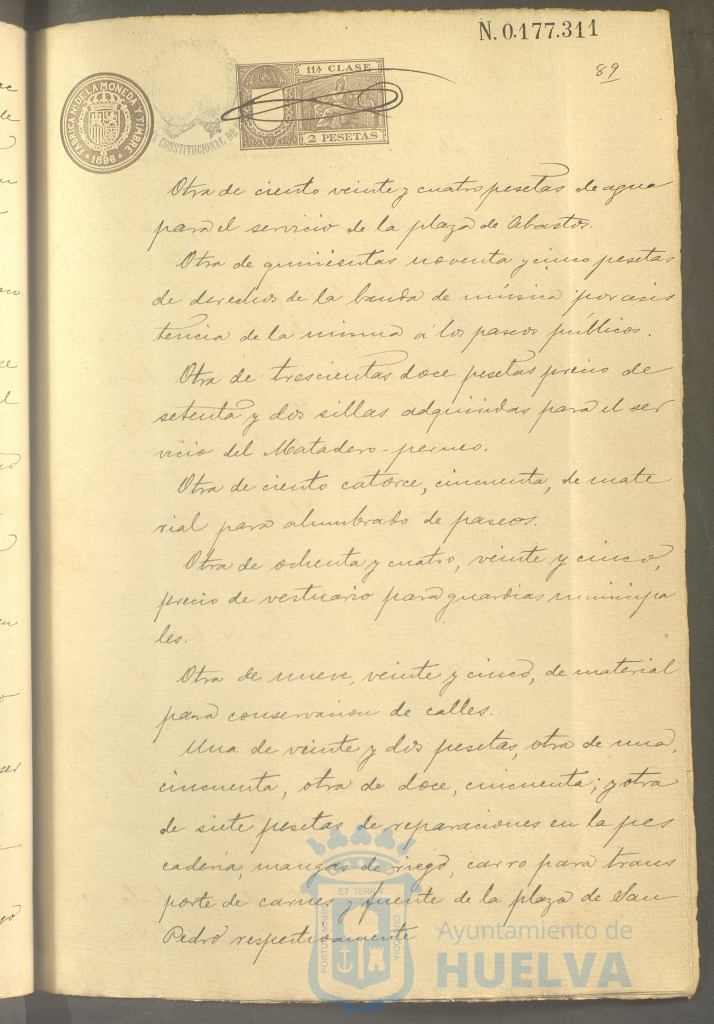 N. 0.177.311
89
FABRICA N. DE LA MONEDA Y TIMBRE
1898
CONSTITUCIONAL DE
11ª CLASE
2 PESETAS
Otra de ciento veinte y cuatro pesetas de agua
para el servicio de la plaza de Abastos.
Otra de quinientas noventa y cinco pesetas
de derechos de la banda de música por asis
tencia de la misma a los paseos públicos.
Otra de trescientas doce pesetas precio de
setenta y dos sillas adquiridas para el ser
vicio del Matadero-perneo.
Otra de ciento catorce, cincuenta, de mate
rial para alumbrado de paseos.
Otra de ochenta y cuatro, veinte y cinco,
precio de vestuario para guardias municipa
les.
Otra de nueve, veinte y cinco, de material
para conservacion de calles.
Una de veinte y dos pesetas, otra de una,
cincuenta, otra de doce, cincuenta; y otra
de siete pesetas de reparaciones en la pes
cadería, mangas de riego, carro para trans
porte de carnes y fuente de la plaza de San
Pedro respectivamente
ET TERRÆ
PORTUS MARIS
CUSTODIA
Ayuntamiento de
HUELVA